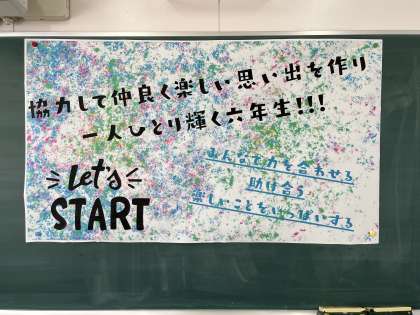 協力して仲良く楽しい思い出を作り
一人ひとり輝く六年生!!!
Let's
START
みんなで力を合わせる
助け合う
楽しいことをいっぱいする